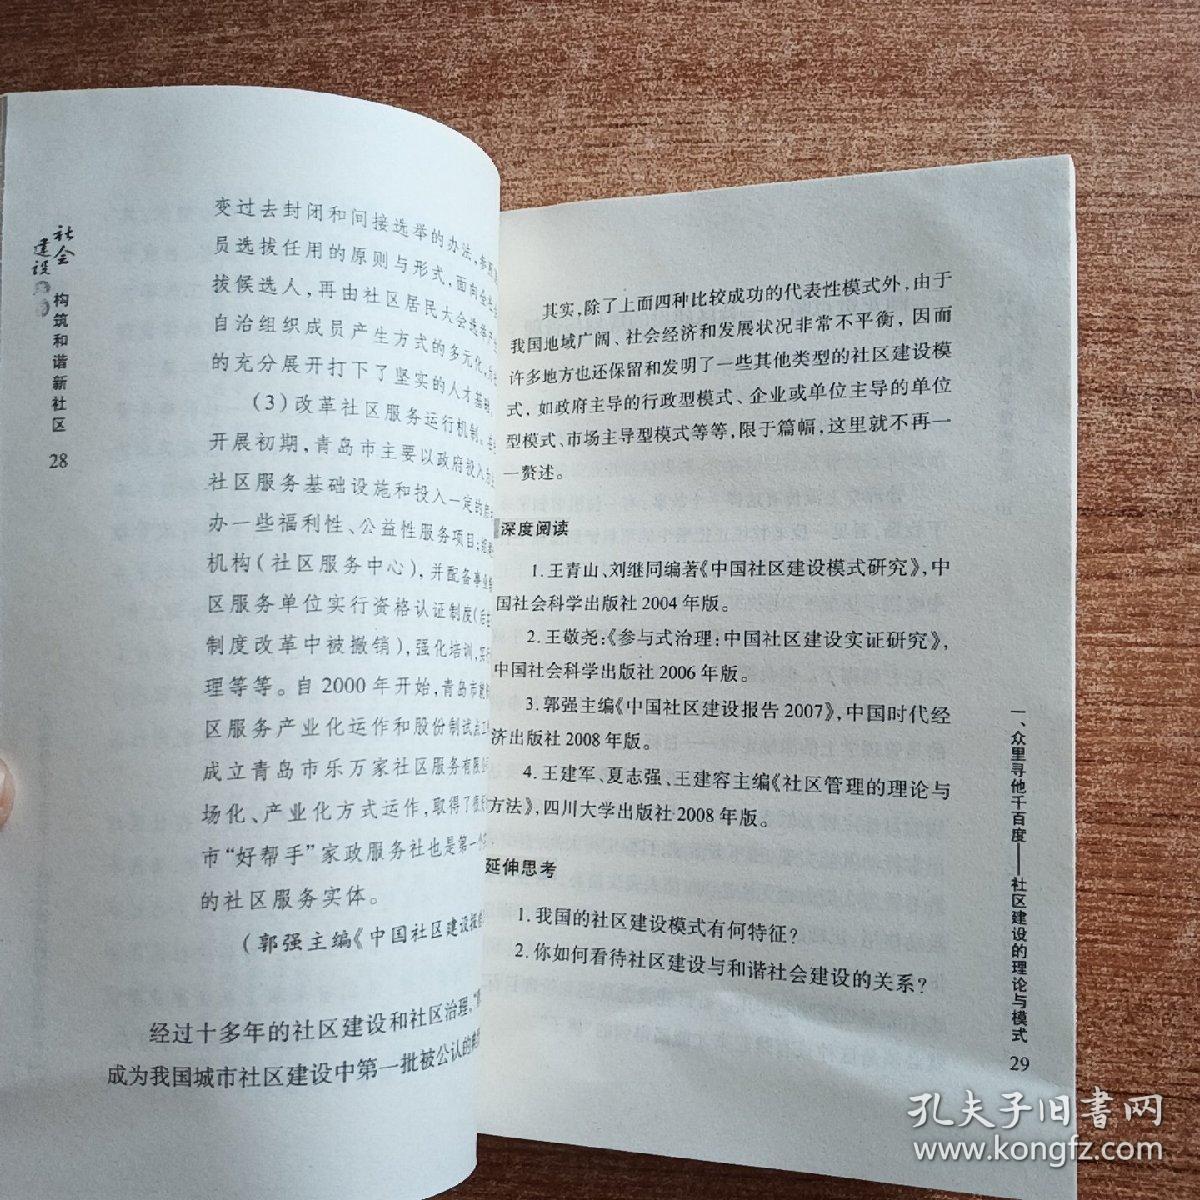 社会
建设
构筑和谐新社区
28
变过去封闭和间接选举的办法,
员选拔任用的原则与形式,面向
拔候选人,再由社区居民大会选举
自治组织成员产生方式的多元化,
的充分展开打下了坚实的人才基础。
(3)改革社区服务运行机制。
开展初期,青岛市主要以政府投入
社区服务基础设施和投入一定的
办一些福利性、公益性服务项目;
机构(社区服务中心),并配备事业
区服务单位实行资格认证制度(
制度改革中被撤销),强化培训,
理等等。自2000年开始,青岛市
区服务产业化运作和股份制试点
成立青岛市乐万家社区服务有限
场化、产业化方式运作,取得了
市“好帮手”家政服务社也是第一
的社区服务实体。
(郭强主编《中国社区建设报
经过十多年的社区建设和社区治理,“
成为我国城市社区建设中第一批被公认的
其实,除了上面四种比较成功的代表性模式外,由于
我国地域广阔、社会经济和发展状况非常不平衡,因而
许多地方也还保留和发明了一些其他类型的社区建设模
式,如政府主导的行政型模式、企业或单位主导的单位
型模式、市场主导型模式等等,限于篇幅,这里就不再一
一赘述。
深度阅读
1.王青山、刘继同编著《中国社区建设模式研究》,中
国社会科学出版社2004年版。
2.王敬尧:《参与式治理:中国社区建设实证研究》,
中国社会科学出版社2006年版。
3.郭强主编《中国社区建设报告2007》,中国时代经
济出版社2008年版。
4.王建军、夏志强、王建容主编《社区管理的理论与
方法》,四川大学出版社2008年版。
延伸思考
1.我国的社区建设模式有何特征?
2.你如何看待社区建设与和谐社会建设的关系?
一、众里寻他千百度——社区建设的理论与模式
29
孔夫子旧书网
www.kongfz.com